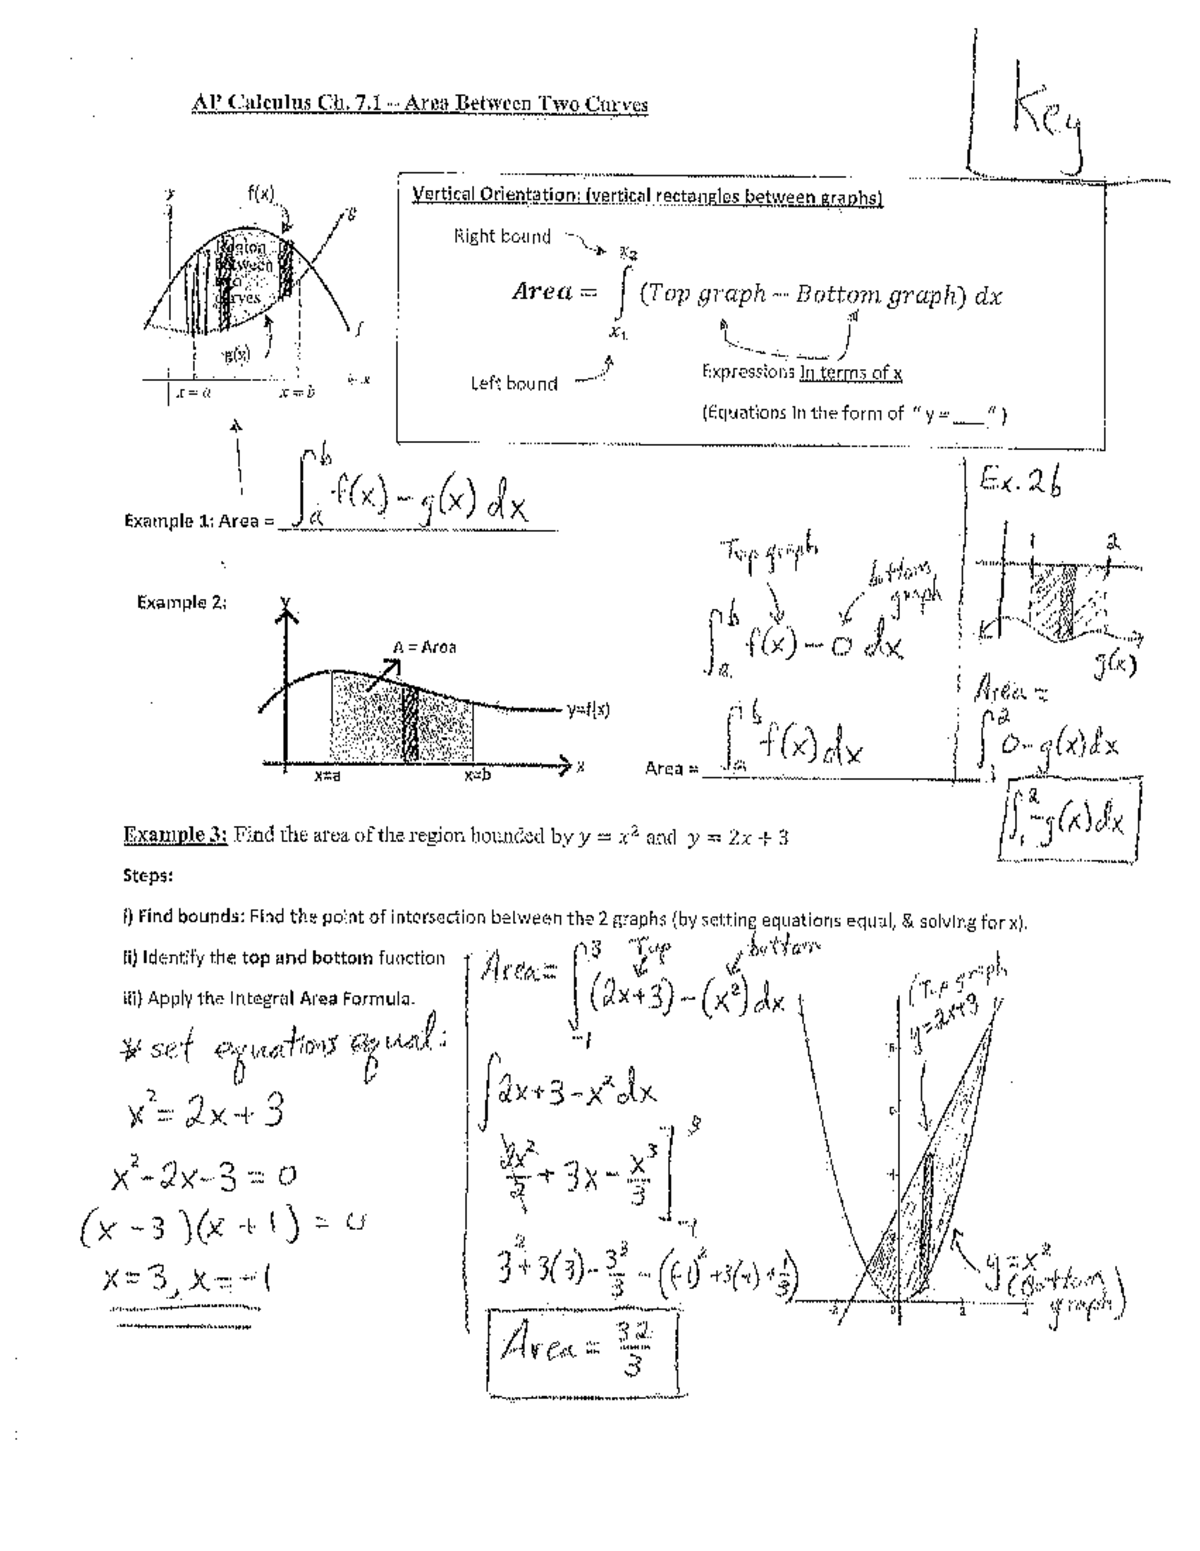 Key
AP Calculus Ch. 7.1 -- Area Between Two Curves
y
f(x)
g
Region
between
two
curves
f
g(x)
x
x = a
x = b
Vertical Orientation: (vertical rectangles between graphs)
Right bound
x₂
Area = ∫ (Top graph − Bottom graph) dx
x₁
Left bound
Expressions in terms of x
(Equations in the form of " y = ___ " )
Example 1: Area = ∫ₐᵇ f(x) − g(x) dx
Ex. 2b
1 2
g(x)
Area =
∫₁² 0 − g(x) dx
∫₁² −g(x) dx
Example 2:
y
A = Area
y=f(x)
x
x=a
x=b
Top graph
bottom
graph
∫ₐᵇ f(x) − 0 dx
Area = ∫ₐᵇ f(x) dx
Example 3: Find the area of the region bounded by y = x² and y = 2x + 3
Steps:
i) Find bounds: Find the point of intersection between the 2 graphs (by setting equations equal, & solving for x).
ii) Identify the top and bottom function
iii) Apply the Integral Area Formula.
* set equations equal:
x² = 2x + 3
x² − 2x − 3 = 0
(x − 3)(x + 1) = 0
x = 3, x = −1
Top
bottom
Area = ∫₋₁³ (2x+3) − (x²) dx
∫ 2x + 3 − x² dx
2x²/2 + 3x − x³/3 ]₋₁³
3² + 3(3) − 3³/3 − ((−1)² + 3(−1) + 1/3)
Area = 32/3
(Top graph
y = 2x+3
y = x²
(Bottom
graph)